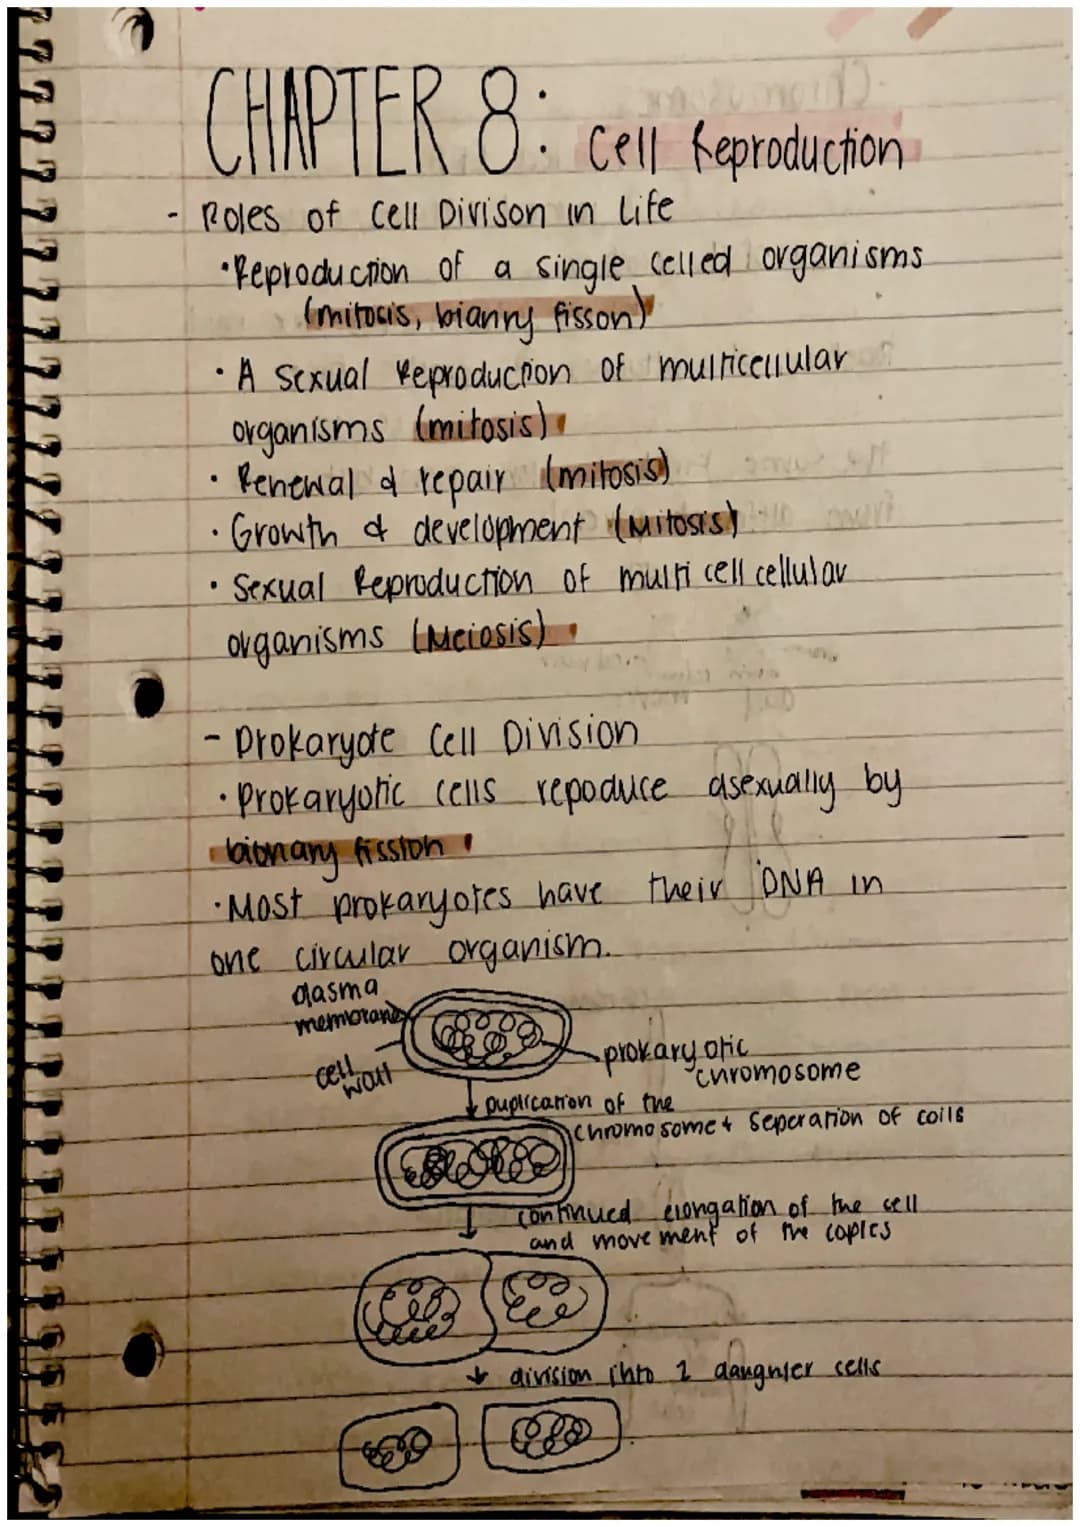 CHAPTER 8: Cell Reproduction
- Roles of Cell Divison in Life
• Reproduction of a single celled organisms
(mitosis, bianry fisson)
• A sexual Reproduction of multicellular
organisms (mitosis)
• Renewal & repair (mitosis)
• Growth & development (Mitosis)
• Sexual Reproduction of multi cell cellular
organisms (Meiosis)
- Prokaryote Cell Division
• Prokaryotic cells repoduce asexually by
bionary fission
• Most prokaryotes have their DNA in
one circular organism.
plasma
membrane
cell
wall
prokaryotic
chromosome
↓ Duplication of the
chromosome + Seperation of coils
↓ continued elongation of the cell
and movement of the copies
↓ division into 2 daughter cells